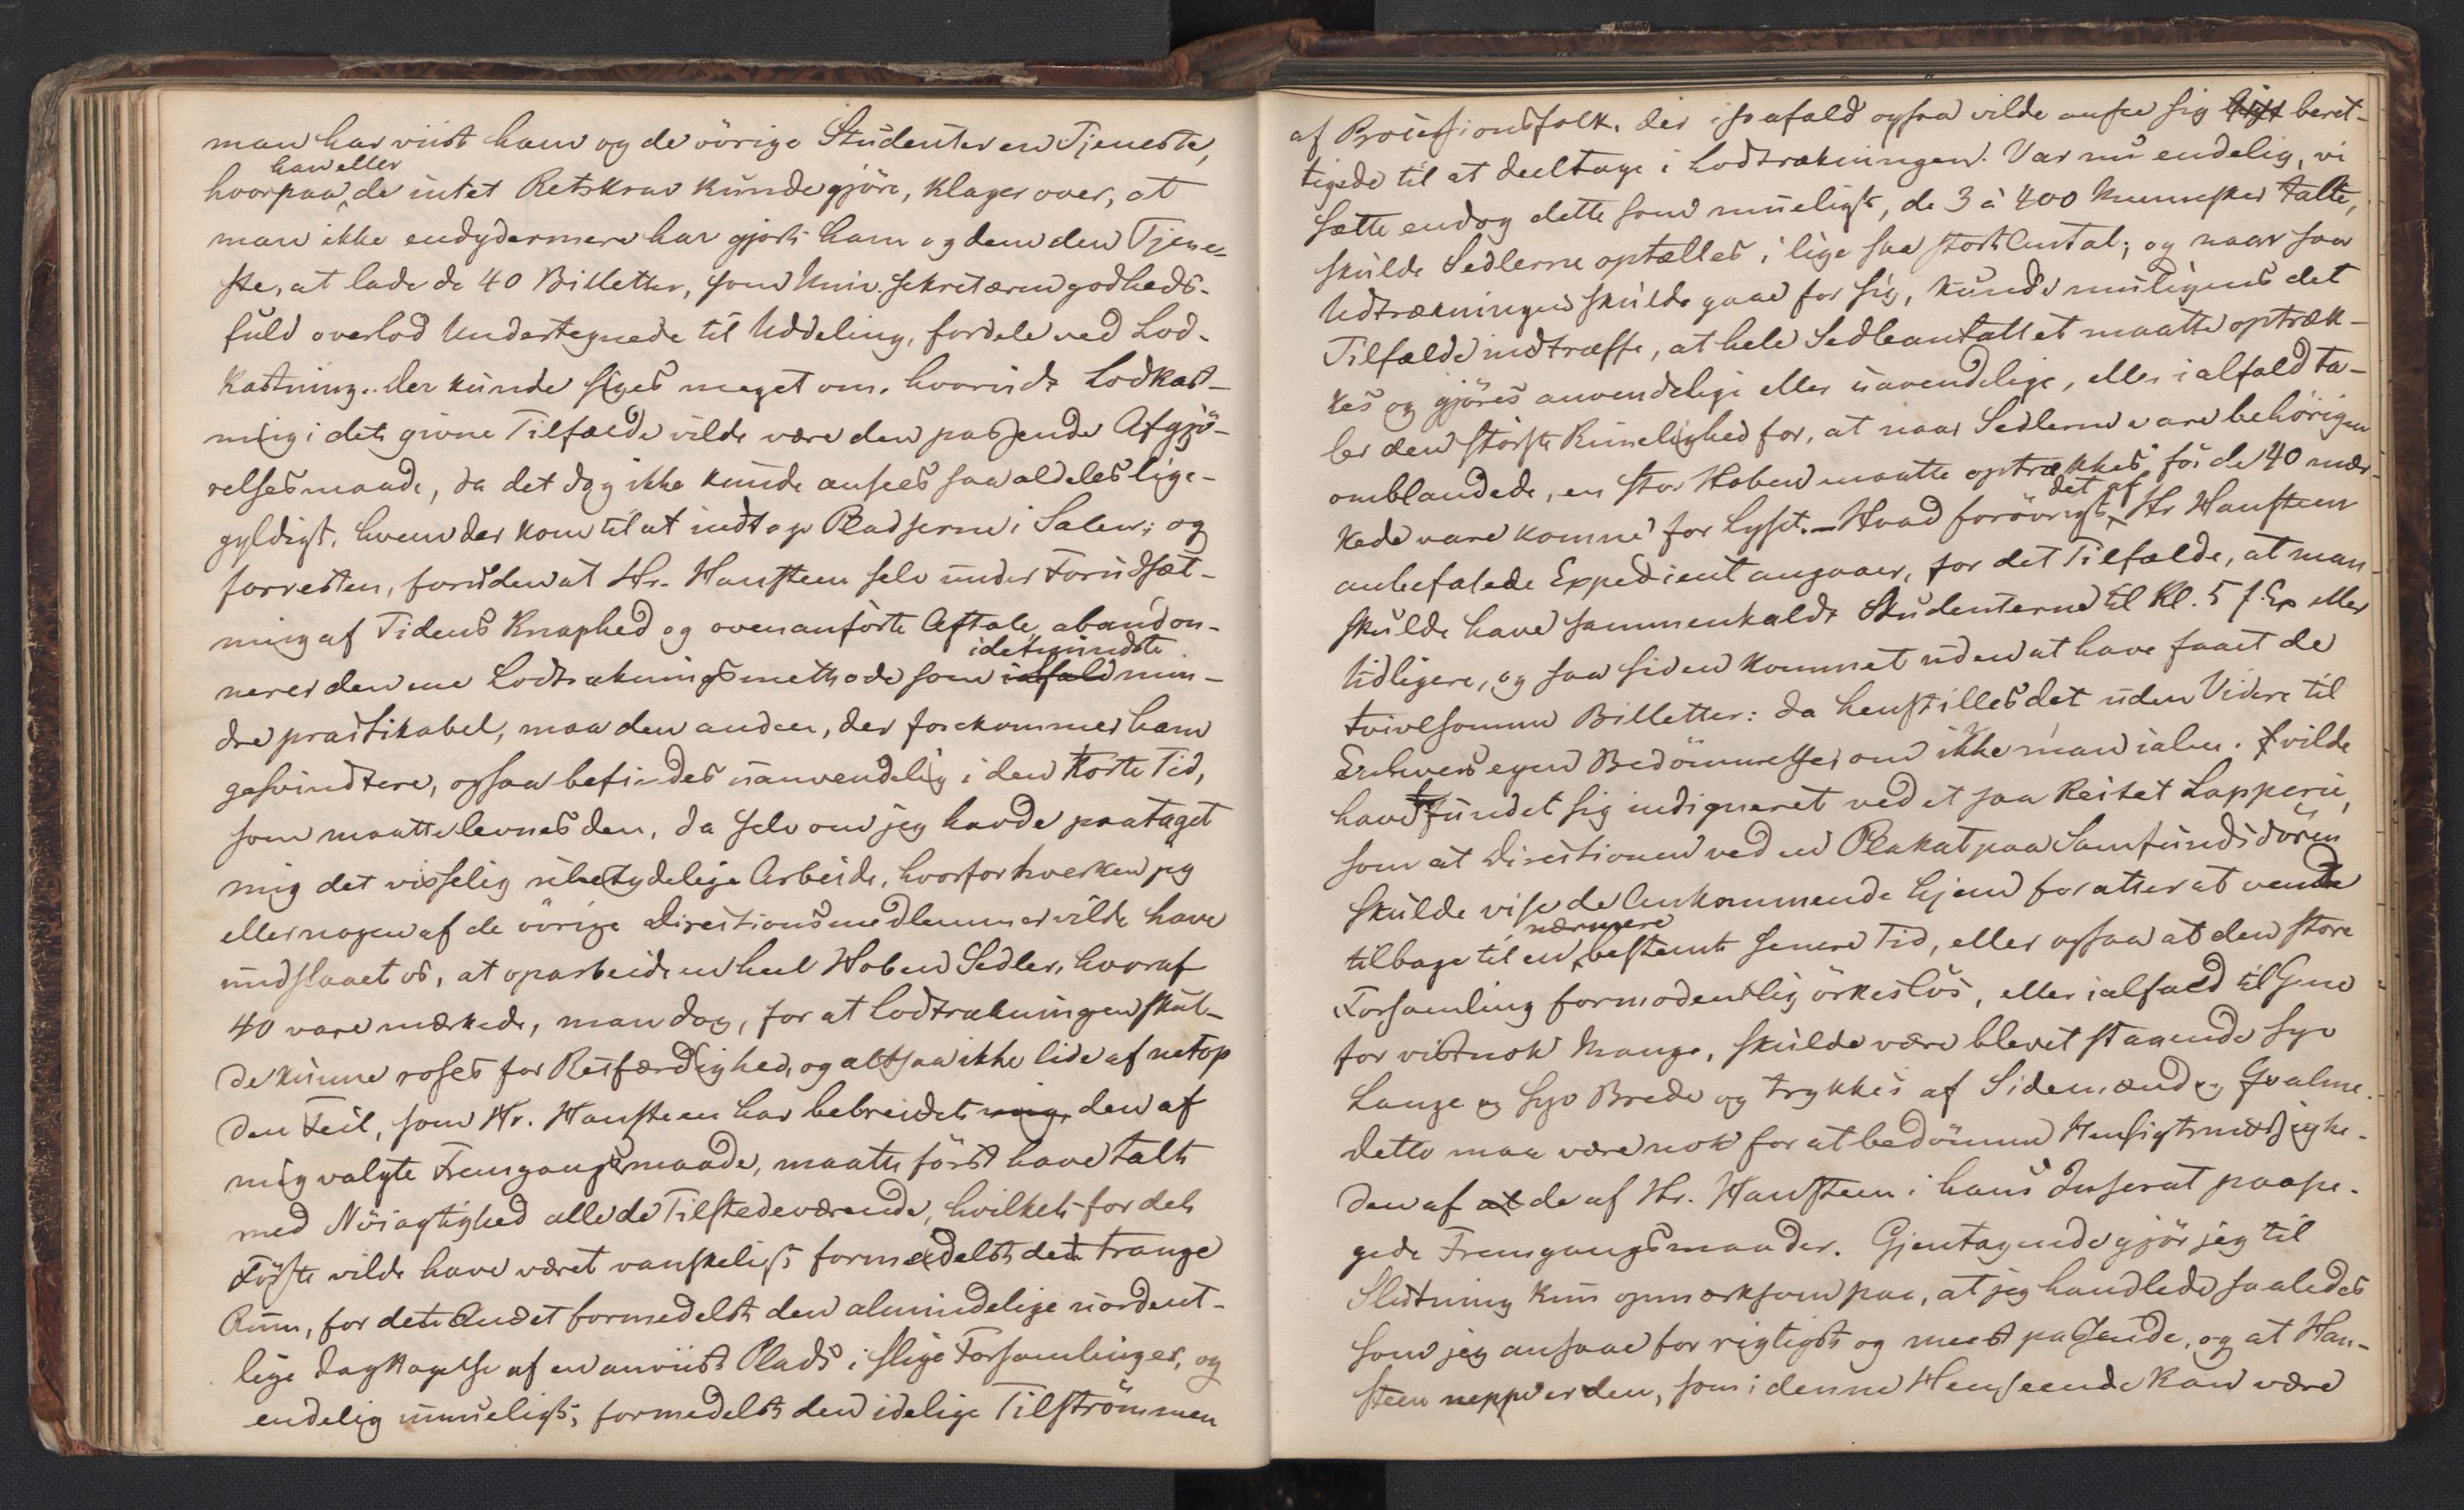 man har viist ham og de övrige Studenter en Tjeneste,
han eller
hvorpaa de intet Retskrav kunde gjöre, klager over, at
man ikke endydermere har gjort ham og dem den Tjene-
ste, at lade de 40 Billetter, som Univ. sekretæren godheds-
fuld overlod Undertegnede til Uddeling, fordele ved Lod-
kastning. Der kunde siges meget om, hvorvidt Lodkast-
ning i det givne Tilfælde vilde være den passende Afgjö-
relsesmaade, da det dog ikke kunde ansees saa aldeles lige-
gyldigt, hvem der kom til at indtage Pladserne i Salen; og
forresten, foruden at Hr. Hansteen selv under Forudsæt-
ning af Tidens Knaphed og ovenanförte Aftale, abandon-
idetmindste
nerer den ene Lodtrækningsmethode som ialfald min-
dre practikabel, maa den anden, der forekommer ham
gesvindtere, ogsaa befindes uanvendelig i den korte Tid,
som maatte levnes den, da selv om jeg havde paataget
mig det visselig ubetydelige Arbeide, hvorfor hverken jeg
eller nogen af de övrige Directionsmedlemmer vilde have
undslaaet os, at oparbeide en heel Hoben Sedler, hvoraf
40 vare mærkede, man dog, for at Lodtrækningen skul-
de kunne roses for Retfærdighed, og altsaa ikke lide af netop
den Feil, som Hr. Hansteen har bebreidet mig, den af
mig valgte Fremgangsmaade, maatte först have talt
med Nöiagtighed alle de Tilstedeværende, hvilket for det
Förste vilde have været vanskeligt formedelst det trange
Rum, for det Andet formedelst den almindelige uordent-
lige Iagttagelse af en anviist Plads i slige Forsamlinger, og
endelig umueligt, formedelst den idelige Tilströmmen
af Processionsfolk, der isaafald ogsaa vilde ansee sig ligt beret-
tigede til at deeltage i Lodtrækningen. Var nu endelig, vi
sætte endog dette som mueligt, de 3 à 400 Mennesker talte,
skulde Sedlerne optælles i lige saa stort Antal; og naar saa
Udtrækningen skulde gaae for sig, kunde muligens det
Tilfælde indtræffe, at hele Sedleantallet maatte optræk-
kes og gjöres anvendelige eller uanvendelige, eller ialfald ta-
ler den störste Rimelighed for, at naar Sedlerne vare behörigen
omblandede, en stor Hoben maatte optrækkes, för de 40 mær-
det af
kede vare komne for Lyset. - Hvad forövrigt Hr Hansteen
anbefalede Expedient angaaer, for det Tilfælde, at man
skulde have sammenkaldt Studenterne til Kl. 5 f. Ex eller
tidligere, og saa siden kommet uden at have faaet de
tvivlsomme Billetter: da henstilles det uden Videre til
Enhvers egen Bedömmelse, om ikke man ialm. vilde
have fundet sig indigneret ved et saa Reitet Lapperie,
som at Directionen ved en Plakat paa Samfundsdören
skulde vise de Ankommende hjem for atter at vende
nærmere
tilbage til en bestemt senere Tid, eller ogsaa at den store
Forsamling formodentlig örkeslös, eller ialfald til Gene
for vistnok Mange, skulde være blevet staaende syv
Lange og syv Brede og trykkes af Sidemænd og Qvalme.
Dette maa være nok for at bedömme Hensigtsmæssighe-
den af at de af Hr. Hansteen i hans Inserat paape-
gede Fremgangsmaader. Gjentagende gjör jeg til
Slutning kun opmærksom paa, at jeg handlede saaledes
som jeg ansaae for rigtigst og meest passende, og at Han-
steen neppe er den, som i denne Henseende kan være